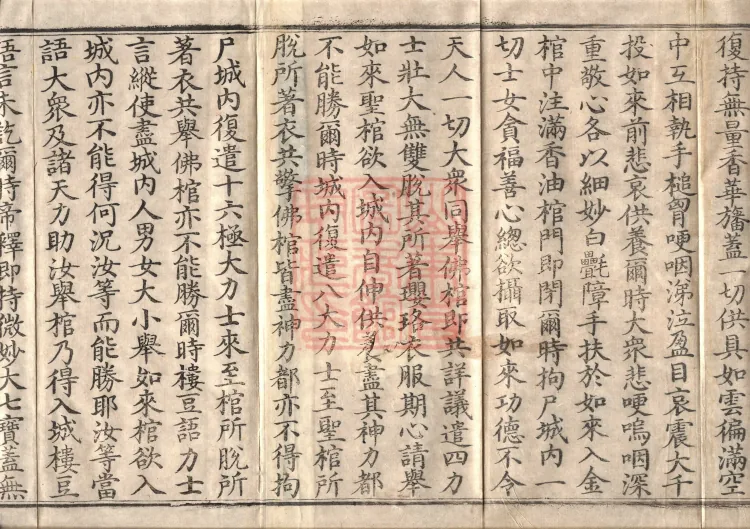 復持無量香華旛蓋一切供具如雲徧滿空
中互相執手槌胷哽咽涕泣盈目哀震大千
投如來前悲哀供養爾時大衆悲哽嗚咽深
重敬心各以細妙白㲲障手扶於如來入金
棺中注滿香油棺門即閉爾時拘尸城内一
切士女貪福善心總欲攝取如來功德不令
天人一切大衆同舉佛棺即共詳議遣四力
士壯大無雙脫其所著瓔珞衣服期心請舉
如來聖棺欲入城内自伸供養盡其神力都
不能勝爾時城内復遣八大力士至聖棺所
脫所著衣共擎佛棺皆盡神力都亦不得拘
尸城内復遣十六極大力士來至棺所脫所
著衣共舉佛棺亦不能勝爾時樓豆語力士
言縱使盡城内人男女大小舉如來棺欲入
城内亦不能得何況汝等而能勝耶汝等當
語大衆及諸天力助汝舉棺乃得入城樓豆
語言未訖爾時帝釋即持微妙大七寶蓋無